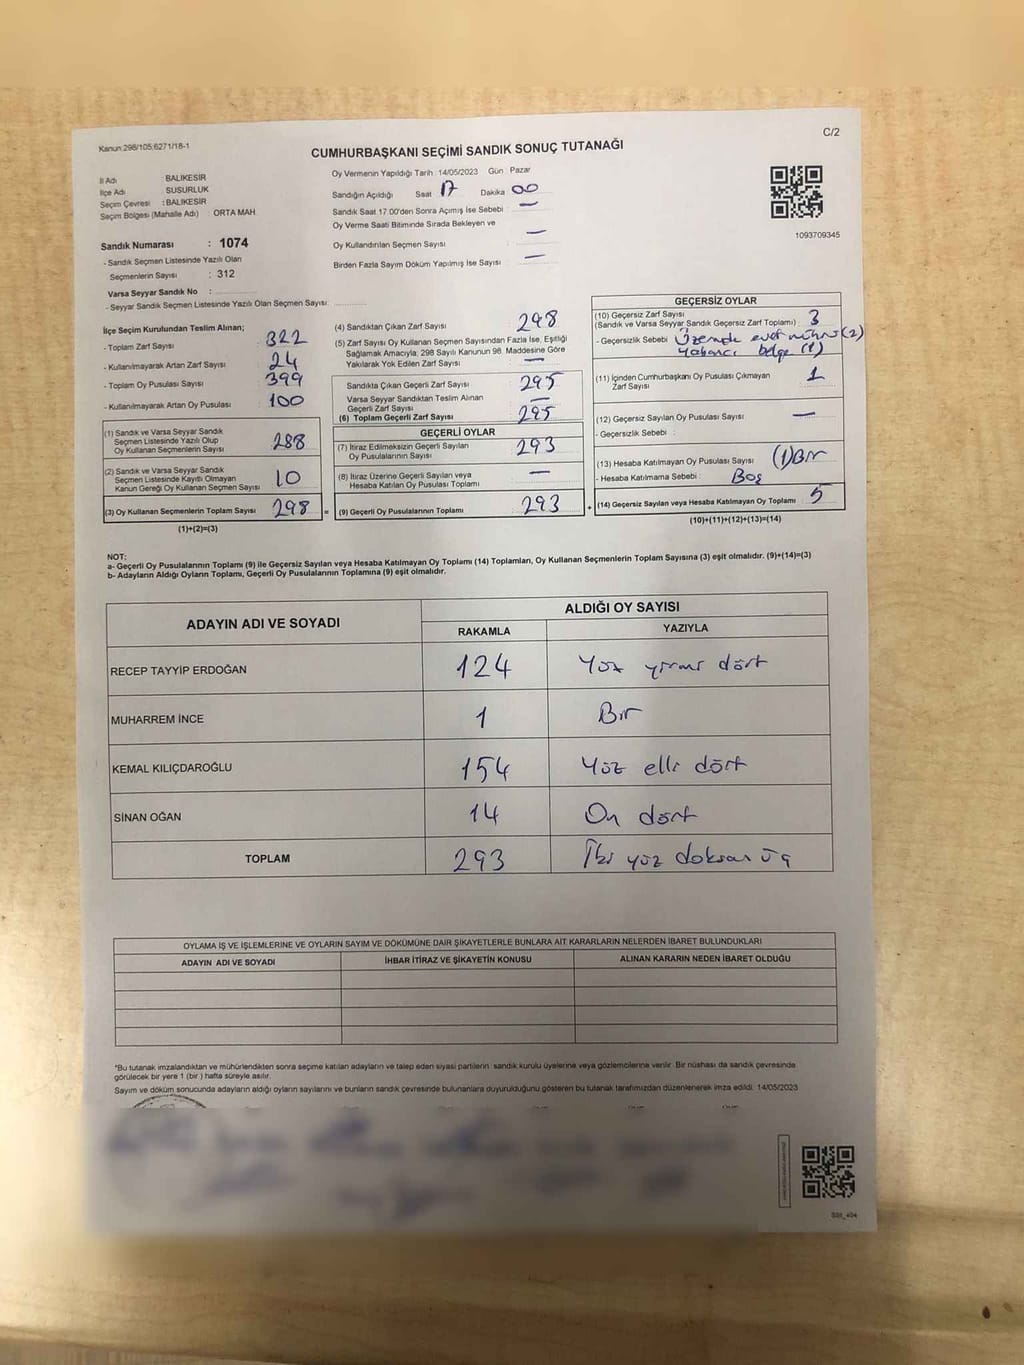 Kanun:298/105;6271/18-1
C/2
CUMHURBAŞKANI SEÇİMİ SANDIK SONUÇ TUTANAĞI
İl Adı : BALIKESİR
İlçe Adı : SUSURLUK
Seçim Çevresi : BALIKESİR
Seçim Bölgesi (Mahalle Adı) : ORTA MAH.
Sandık Numarası : 1074
- Sandık Seçmen Listesinde Yazılı Olan
Seçmenlerin Sayısı : 312
Varsa Seyyar Sandık No :
- Seyyar Sandık Seçmen Listesinde Yazılı Olan Seçmen Sayısı:
Oy Vermenin Yapıldığı Tarih :14/05/2023 Gün : Pazar
Sandığın Açıldığı Saat 17 Dakika 00
Sandık Saat 17:00'den Sonra Açımış İse Sebebi : —
Oy Verme Saati Bitiminde Sırada Bekleyen ve
Oy Kullandırılan Seçmen Sayısı : —
Birden Fazla Sayım Döküm Yapılmış İse Sayısı : —
1093709345
İlçe Seçim Kurulundan Teslim Alınan;
- Toplam Zarf Sayısı : 322
- Kullanılmayarak Artan Zarf Sayısı : 24
- Toplam Oy Pusulası Sayısı : 399
- Kullanılmayarak Artan Oy Pusulası : 100
(1) Sandık ve Varsa Seyyar Sandık
Seçmen Listesinde Yazılı Olup
Oy Kullanan Seçmenlerin Sayısı 288
(2) Sandık ve Varsa Seyyar Sandık
Seçmen Listesinde Kayıtlı Olmayan
Kanun Gereği Oy Kullanan Seçmen Sayısı 10
(3) Oy Kullanan Seçmenlerin Toplam Sayısı 298 =
(1)+(2)=(3)
(4) Sandıktan Çıkan Zarf Sayısı : 298
(5) Zarf Sayısı Oy Kullanan Seçmen Sayısından Fazla İse, Eşitliği
Sağlamak Amacıyla, 298 Sayılı Kanunun 98. Maddesine Göre
Yakılarak Yok Edilen Zarf Sayısı : —
Sandıkta Çıkan Geçerli Zarf Sayısı : 295
Varsa Seyyar Sandıktan Teslim Alınan
Geçerli Zarf Sayısı : —
(6) Toplam Geçerli Zarf Sayısı : 295
GEÇERLİ OYLAR
(7) İtiraz Edilmeksizin Geçerli Sayılan
Oy Pusulalarının Sayısı 293
(8) İtiraz Üzerine Geçerli Sayılan veya
Hesaba Katılan Oy Pusulası Toplamı —
(9) Geçerli Oy Pusulalarının Toplamı 293 +
GEÇERSİZ OYLAR
(10) Geçersiz Zarf Sayısı
(Sandık ve Varsa Seyyar Sandık Geçersiz Zarf Toplamı) : 3
- Geçersizlik Sebebi : Üzerinde evet mührü (2)
Yabancı belge (1)
(11) İçinden Cumhurbaşkanı Oy Pusulası Çıkmayan
Zarf Sayısı : 1
(12) Geçersiz Sayılan Oy Pusulası Sayısı : —
- Geçersizlik Sebebi :
(13) Hesaba Katılmayan Oy Pusulası Sayısı : (1) Bir
- Hesaba Katılmama Sebebi : Boş
(14) Geçersiz Sayılan veya Hesaba Katılmayan Oy Toplamı : 5
(10)+(11)+(12)+(13)=(14)
NOT:
a- Geçerli Oy Pusulalarının Toplamı (9) ile Geçersiz Sayılan veya Hesaba Katılmayan Oy Toplamı (14) Toplamları, Oy Kullanan Seçmenlerin Toplam Sayısına (3) eşit olmalıdır. (9)+(14)=(3)
b- Adayların Aldığı Oyların Toplamı, Geçerli Oy Pusulalarının Toplamına (9) eşit olmalıdır.
ADAYIN ADI VE SOYADI
ALDIĞI OY SAYISI
RAKAMLA YAZIYLA
RECEP TAYYİP ERDOĞAN 124 Yüz yirmi dört
MUHARREM İNCE 1 Bir
KEMAL KILIÇDAROĞLU 154 Yüz elli dört
SİNAN OĞAN 14 On dört
TOPLAM 293 İki yüz doksan üç
OYLAMA İŞ VE İŞLEMLERİNE VE OYLARIN SAYIM VE DÖKÜMÜNE DAİR ŞİKAYETLERLE BUNLARA AİT KARARLARIN NELERDEN İBARET BULUNDUKLARI
ADAYIN ADI VE SOYADI İHBAR İTİRAZ VE ŞİKAYETİN KONUSU ALINAN KARARIN NEDEN İBARET OLDUĞU
*Bu tutanak imzalandıktan ve mühürlendikten sonra seçime katılan adayların ve talep eden siyasi partilerin sandık kurulu üyelerine veya gözlemcilerine verilir. Bir nüshası da sandık çevresinde
görülecek bir yere 1 (bir) hafta süreyle asılır.
Sayım ve döküm sonucunda adayların aldığı oyların sayılarını ve bunların sandık çevresinde bulunanlara duyurulduğunu gösteren bu tutanak tarafımızdan düzenlenerek imza edildi. 14/05/2023